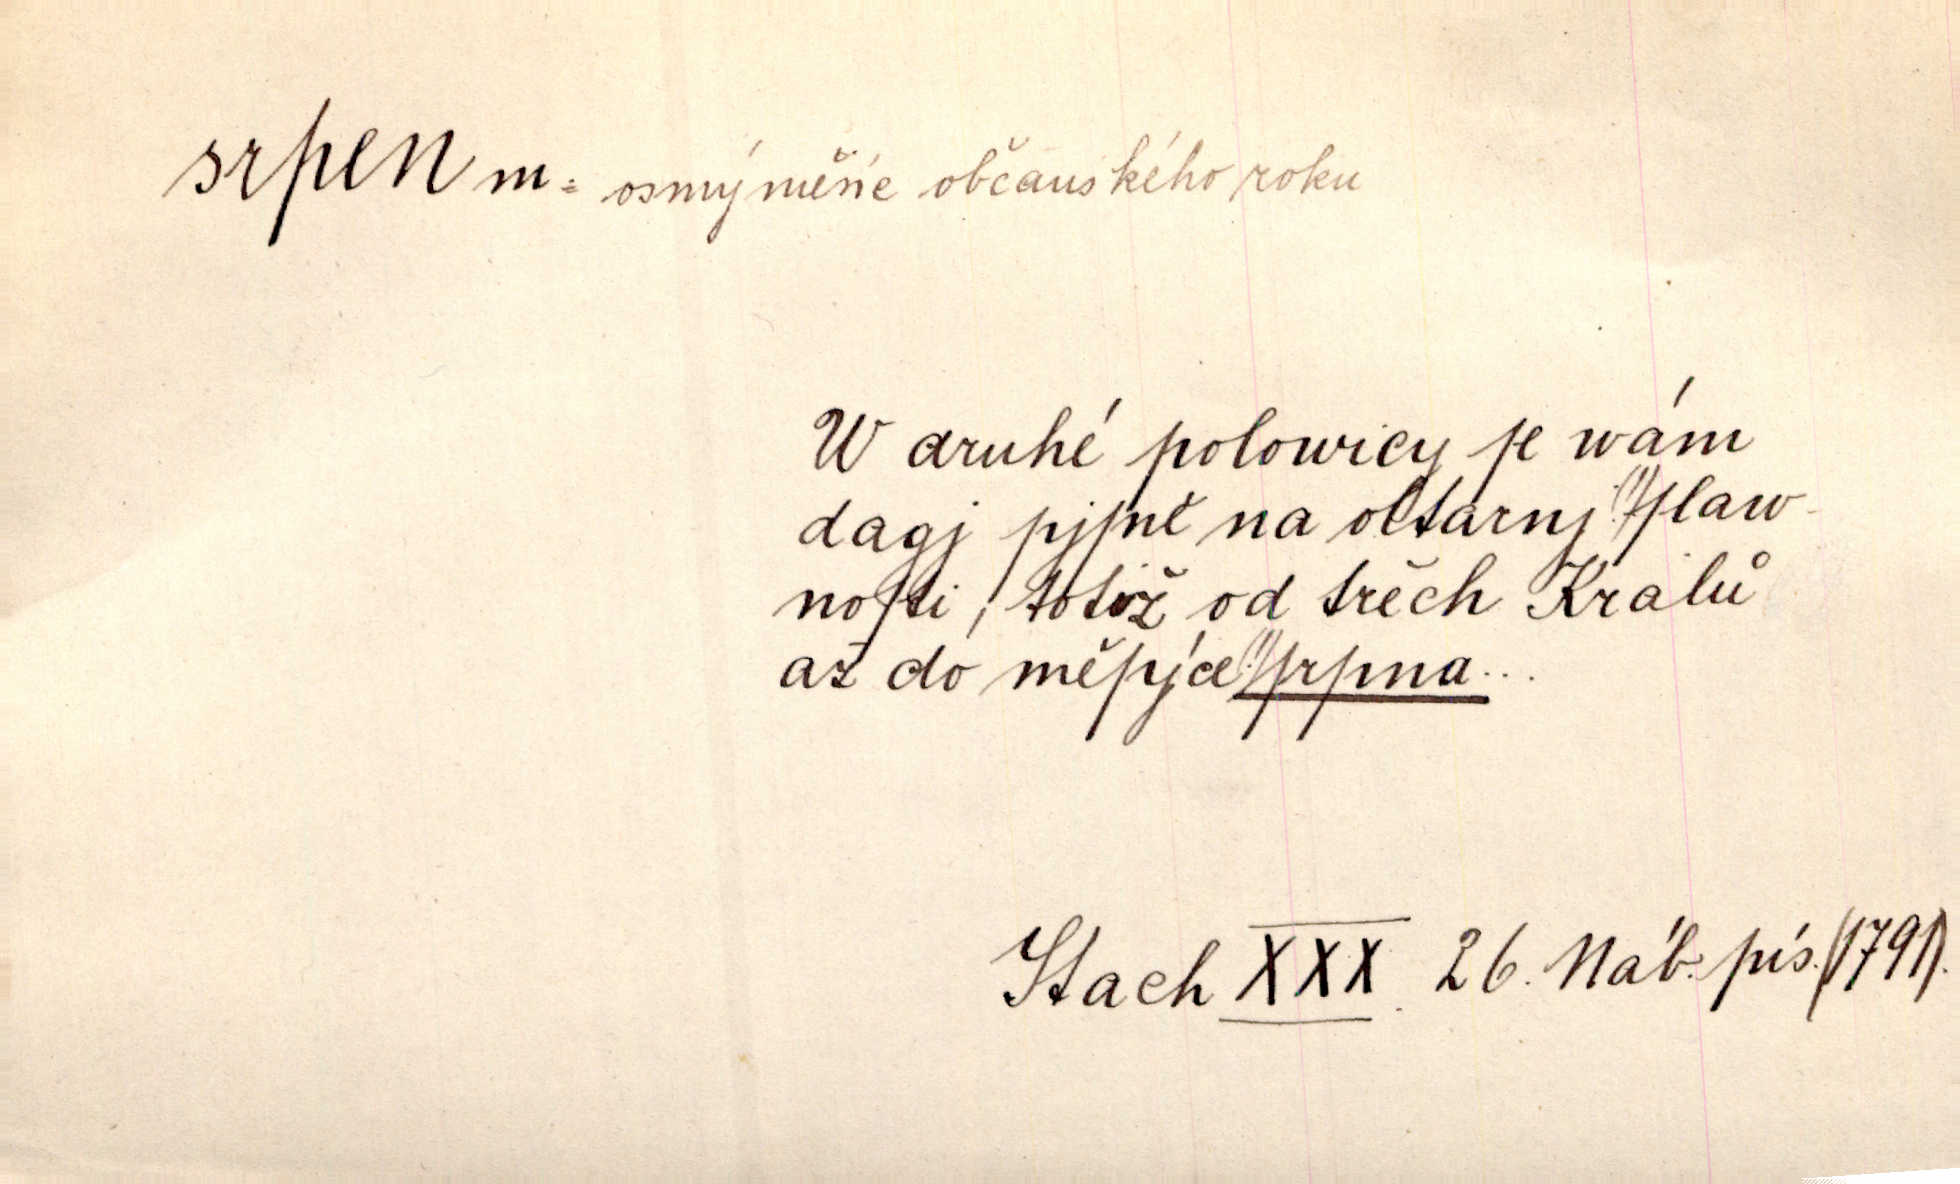 srpen m. osmý měsíc občanského roku
W druhé polowicy ſe wám
dagj pjſně na oltárnj (!) ſlaw-
noſti, totiž od třech Králů
až do měſýce (!) ſrpna...
Stach XXX. 26. Náb. pís. (1791).